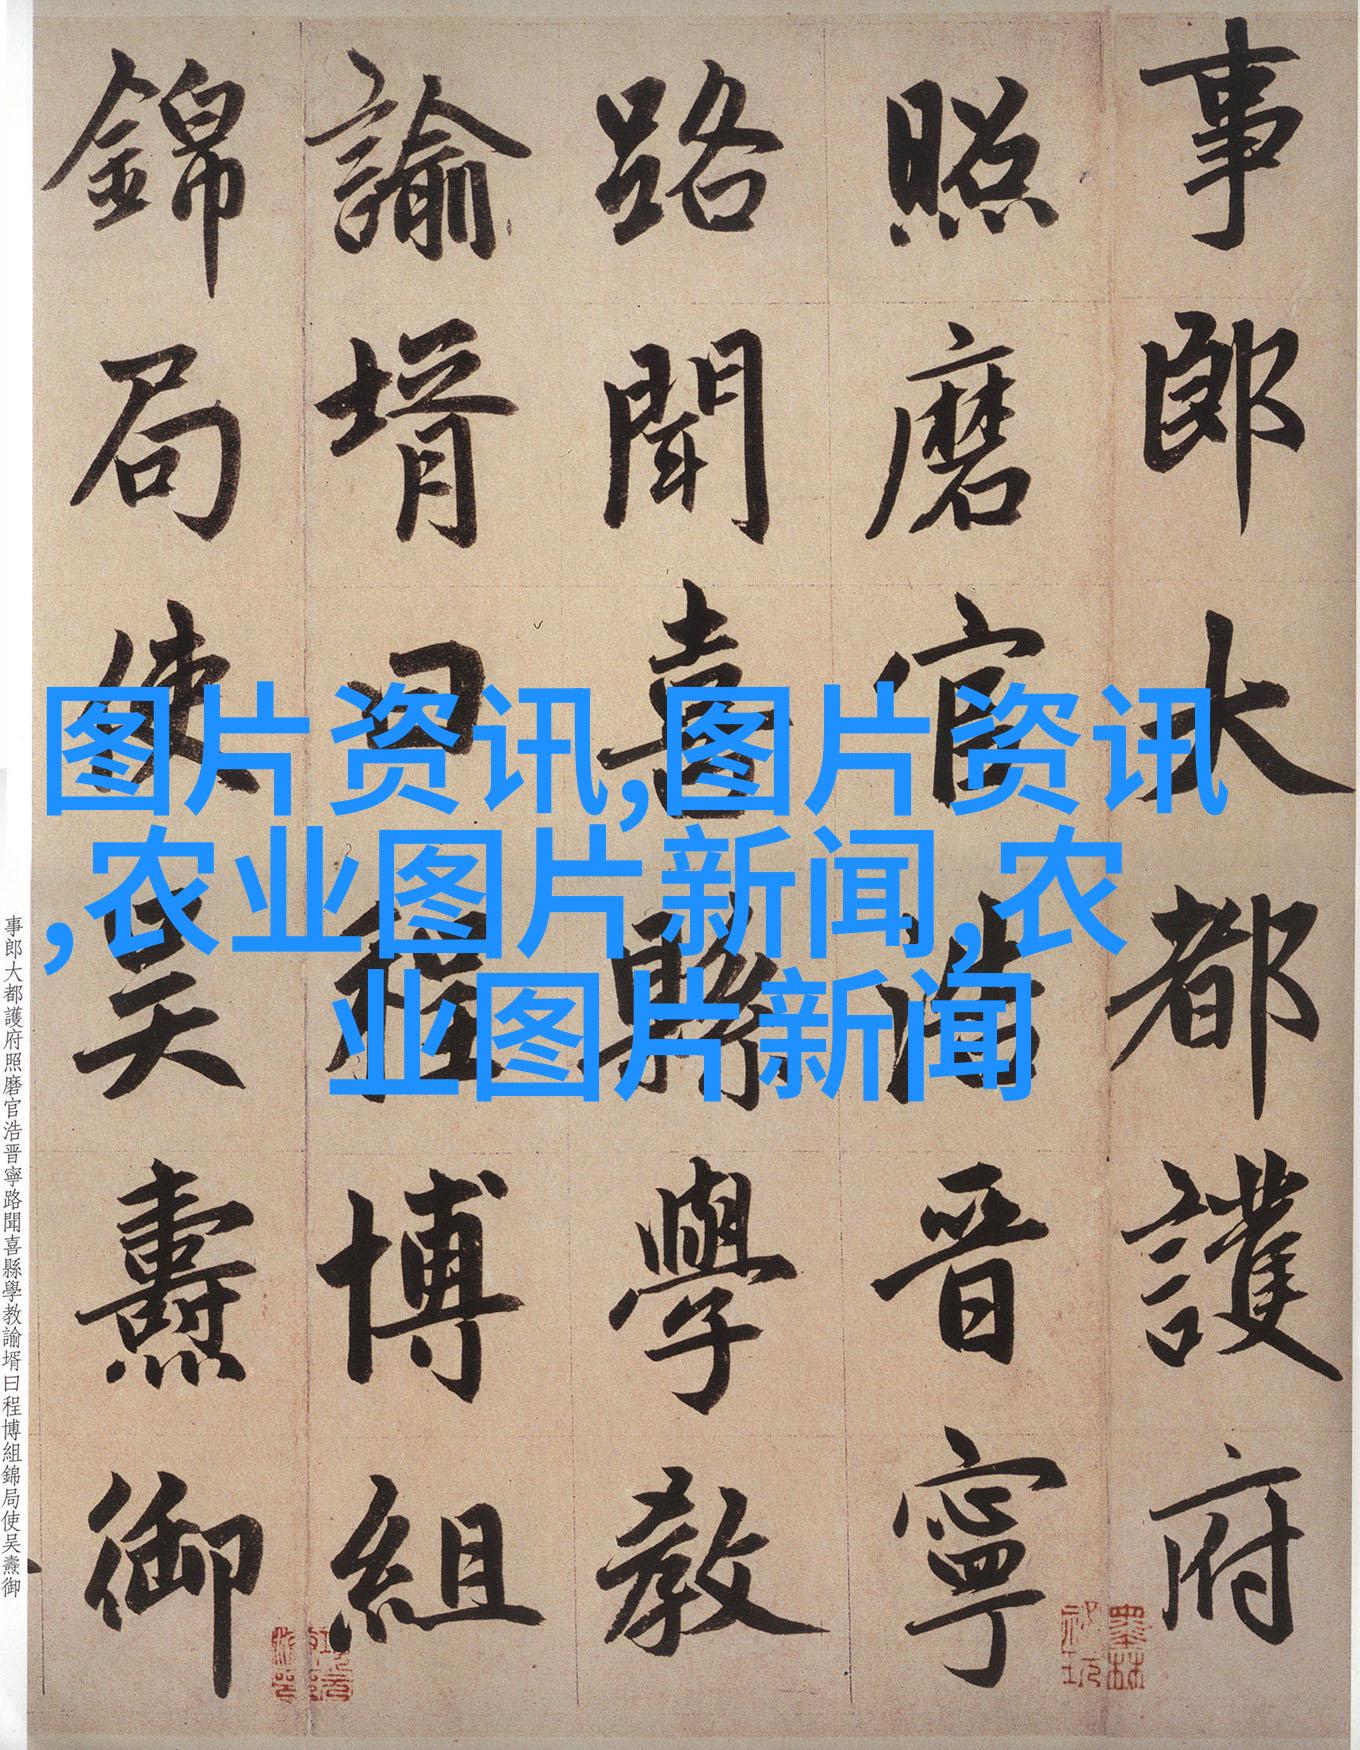 事郎大都護府
照磨官浩晋寧
路聞喜縣學教
諭壻曰程博組
錦局使吴燾御
图片资讯,图片资讯
,农业图片新闻,农
业图片新闻
事郎大都護府照磨官浩晋寧路聞喜縣學教諭壻曰程博組錦局使吴燾御